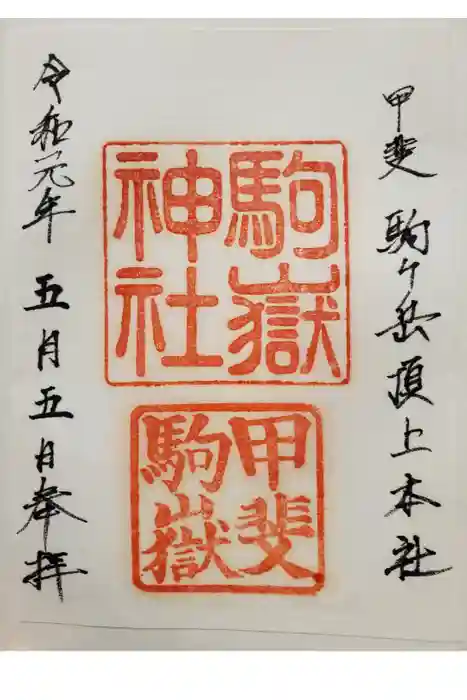 甲斐駒ケ岳頂上本社
駒嶽
神社
甲斐
駒嶽
令和元年五月五日奉拝